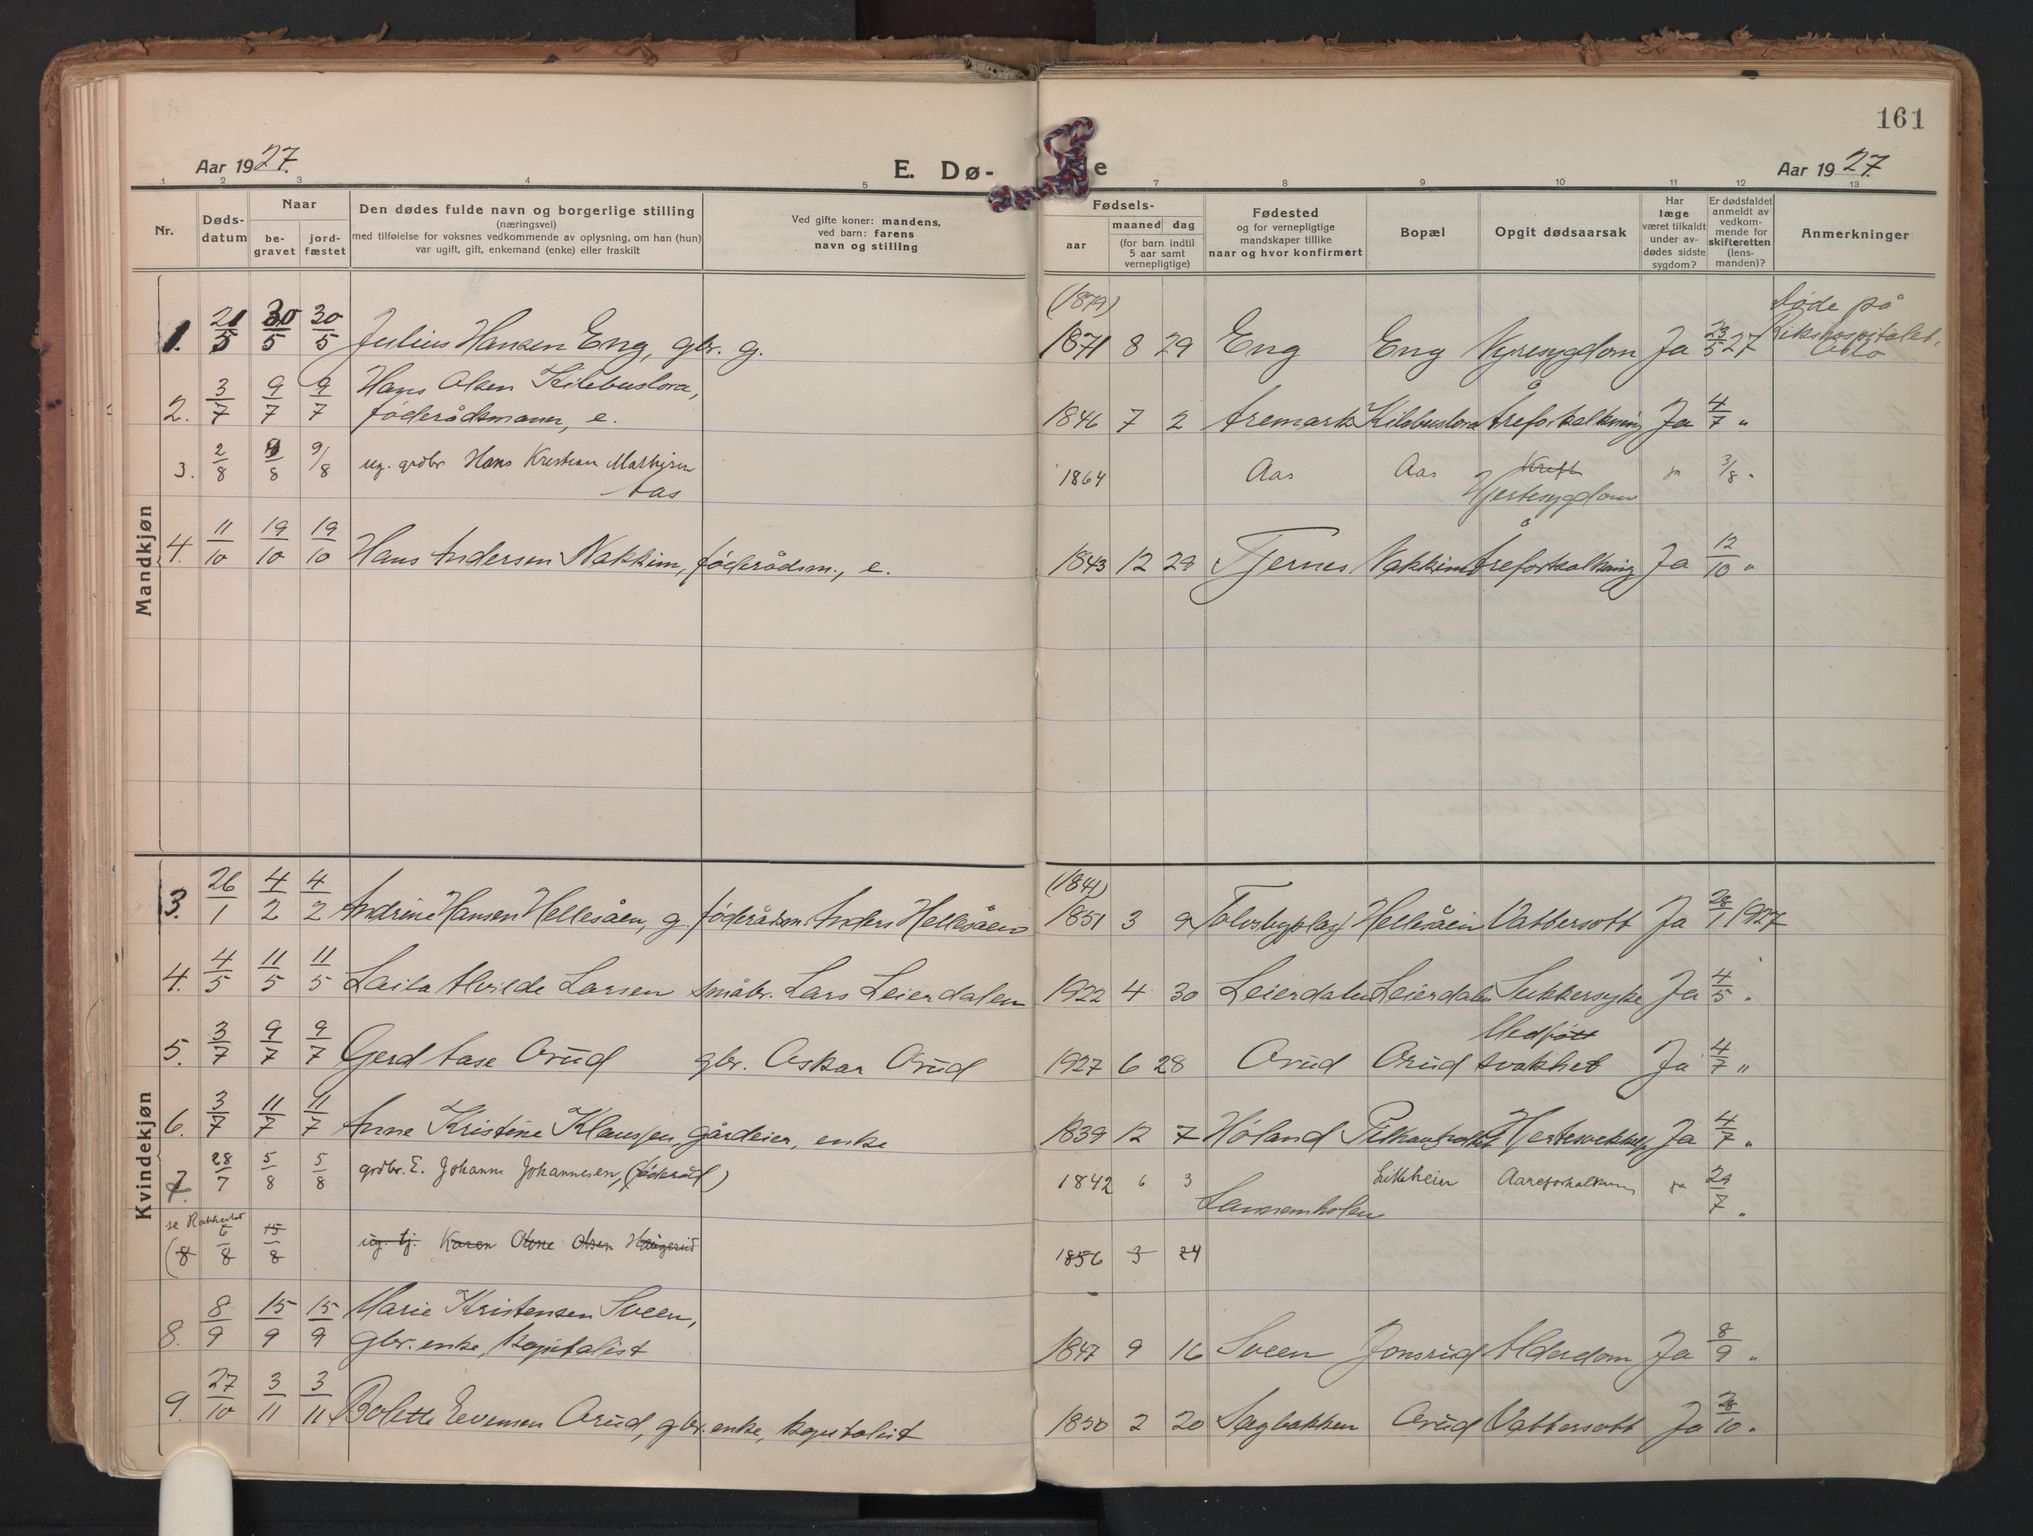 161
Aar 1927.
E. Dø-
de
Aar 1927.
1 2 3 4 5 7 8 9 10 11 12 13
Nr.
Døds-
datum
Naar
be-
gravet
jord-
fæstet
Den dødes fulde navn og borgerlige stilling
(næringsvei)
med tilføielse for voksnes vedkommende av oplysning, om han (hun)
var ugift, gift, enkemand (enke) eller fraskilt
Ved gifte koner: mandens,
ved barn: farens
navn og stilling
Fødsels-
aar
maaned
dag
(for barn indtil
5 aar samt
vernepligtige)
Fødested
og for vernepligtige
mandskaper tillike
naar og hvor konfirmert
Bopæl
Opgit dødsaarsak
Har
læge
været tilkaldt
under av-
dødes sidste
sygdom?
Er dødsfaldet
anmeldt av
vedkom-
mende for
skifteretten
(lens-
manden)?
Anmerkninger
Mandkjøn
1. 21/5 30/5 30/5 Julius Hansen Eng, gbr. g. (1879) 1871 8 29 Eng Eng Nyresygdom Ja 23/5 27 Døde på
Rikshospitalet,
Oslo
2. 3/7 9/7 9/7 Hans Olsen Kilebuslora,
føderådsmann, e. 1846 7 2 Aremark Kilebuslora Åreforkalkning Ja 4/7 "
3. 2/8 9/8 9/8 ug. grdbr. Hans Kristian Mathisen
Aas 1864 Aas Aas Kreft
Hjertesygdom ja 3/8 "
4. 11/10 19/10 19/10 Hans Andersen Nakkim, føderådsm., e. 1843 12 29 Tjernes Nakkim Åreforkalkning Ja 12/10 "
Kvindekjøn
3. 26/1 4/2 4/2 Andrine Hansen Hellesåen, g. føderådsm. Anders Hellesåen (1841) 1851 3 9 Hellesåen Vattersott Ja 28/1 1927
4. 4/5 11/5 11/5 Laila Alvilde Larsen småbr. Lars Leierdalen 1922 4 30 Leierdalen Leierdalen Sukkersyke Ja 4/5 "
5. 3/7 9/7 9/7 Gerd Aase Orud gbr. Oskar Orud 1927 6 28 Orud Orud Medføtt
svakhet Ja 4/7 "
6. 3/7 11/7 11/7 Anne Kristine Klaussen, gårdeier, enke 1839 12 7 Høland Hjertesvekkelse Ja 4/7 "
7. 28/7 5/8 5/8 grdbr. E. Johanne Johannesen, (føderåd) 1842 6 3 Lannemholen Likheim Aareforkalkning ja 29/7 "
se Rakkestad
(8 6/8 15/8 ug. tj. Karen Oline Olsen Haugerud 1856 3 24
8. 8/9 15/9 15/9 Marie Kristensen Sveen,
gbr. enke, kapitalist 1847 9 16 Sveen Jonsrud Alderdom Ja 8/9 "
9. 27/10 3/11 3/11 Bolette Evensen Orud, gbr. enke, kapitalist 1850 2 20 Sagbakken Orud Vattersott Ja 28/10 "